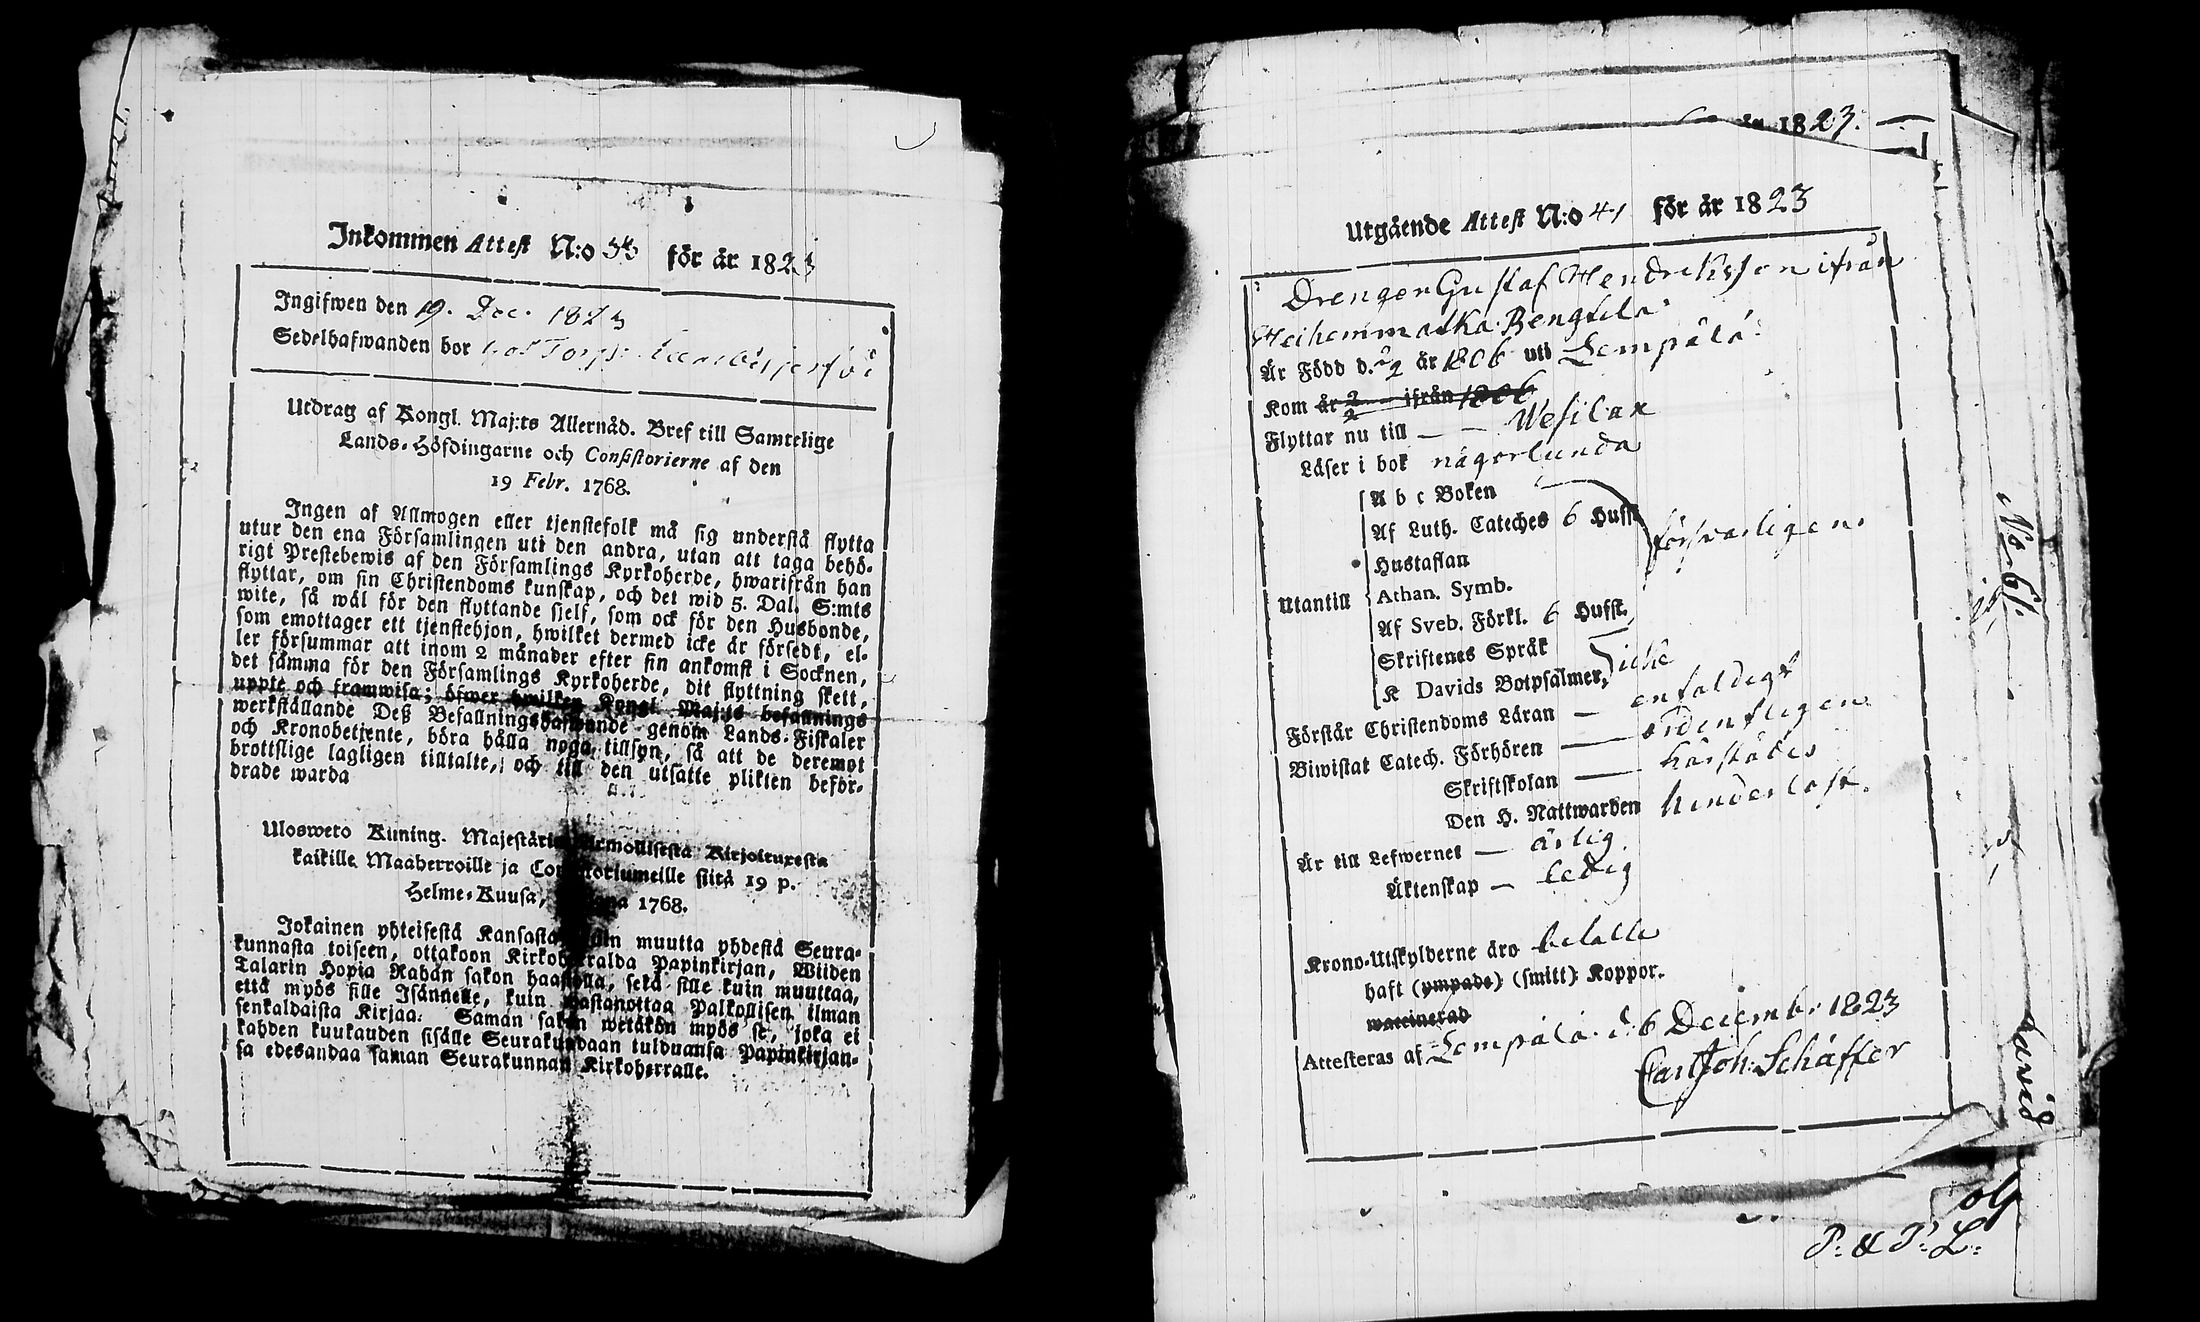 Inkommen Attest N:o 53 för år 1823
Ingifwen den 19. Dec. 1823
Sedelhafwanden bor hos Torp:
Utdrag af Kongl. Maj:ts Allernåd. Bref till Samtelige
Lands-Höfdingarne och Consistorierne af den
19 Febr. 1768.
Ingen af Allmogen eller tjenstefolk må sig understå flytta
utur den ena Församlingen uti den andra, utan att taga behö-
rigt Prestebewis af den Församlings Kyrkoherde, hwarifrån han
flyttar, om sin Christendoms kunskap, och det wid 5. Dal. S:mts
wite, så wäl för den flyttande sjelf, som ock för den Husbonde,
som emottager ett tjenstehjon, hwilket dermed icke är försedt, el-
ler försummar att inom 2 månader efter sin ankomst i Socknen,
det sämma för den Församlings Kyrkoherde, dit flyttning skett,
uppte och framwisa; öfwer hwilken Kongl. Maj:ts befallnings
werkställande Deß Befallningshafwande genom Lands-Fiskaler
och Kronobetjente, böra hålla noga tillsyn, så att de deremot
brottslige lagligen tilltalte, och till den utsatte plikten beför-
drade warda
Ulosweto Kuning. Majestätin Armollisesta Kirjoituxesta
kaikille Maaherroille ja Consistoriumeille siitä 19 p.
Helme-Kuusa, 1768.
Jokainen yhteisestä Kansasta kuin muutta yhdestä Seura-
kunnasta toiseen, ottakoon Kirkoherralda Papinkirjan, Wiiden
Talarin Hopia Rahan sakon haastolla, sekä sille kuin muuttaa,
että myös sille Isännelle, kuin wastanottaa Palkollisen ilman
senkaldaista Kirjaa: Saman sakon wetäkön myös se, joka ei
kahden kuukauden sisälle Seurakundaan tulduansa Papinkirjan-
sa edesandaa saman Seurakunnan Kirkoherralle.
1823.
Utgående Attest N:o 41 för år 1823
Drengen Gustaf Hendriksson ifrån
Heihenmatka Bengtila
Är Född d. 2/2 år 1806 uti Lempälä
Kom år 2/2 ifrån 1806
Flyttar nu till — — Wesilax
Läser i bok någorlunda
Utantill
A b c Boken
Af Luth. Cateches 6 Hufst
försvarligen
Hustaflan
Athan. Symb.
Af Sveb. Förkl. 6 Hufst.
Skriftenes Språk
icke
K Davids Botpsalmer,
Förstår Christendoms Läran — enfaldigt
Biwistat Catech. Förhören — ordentligen
Skriftskolan — härstädes
Den H. Nattwarden hinderlöst.
Är till Lefwernet — ärlig
Äktenskap — ledig
Krono-Utskylderne äro betalte
haft (ympade) (smitt): Koppor.
waccinerad
Attesteras af Lempälä d. 6 Decemb: 1823
Carl Joh: Schäffer
No 61.
David
P: & P: L: